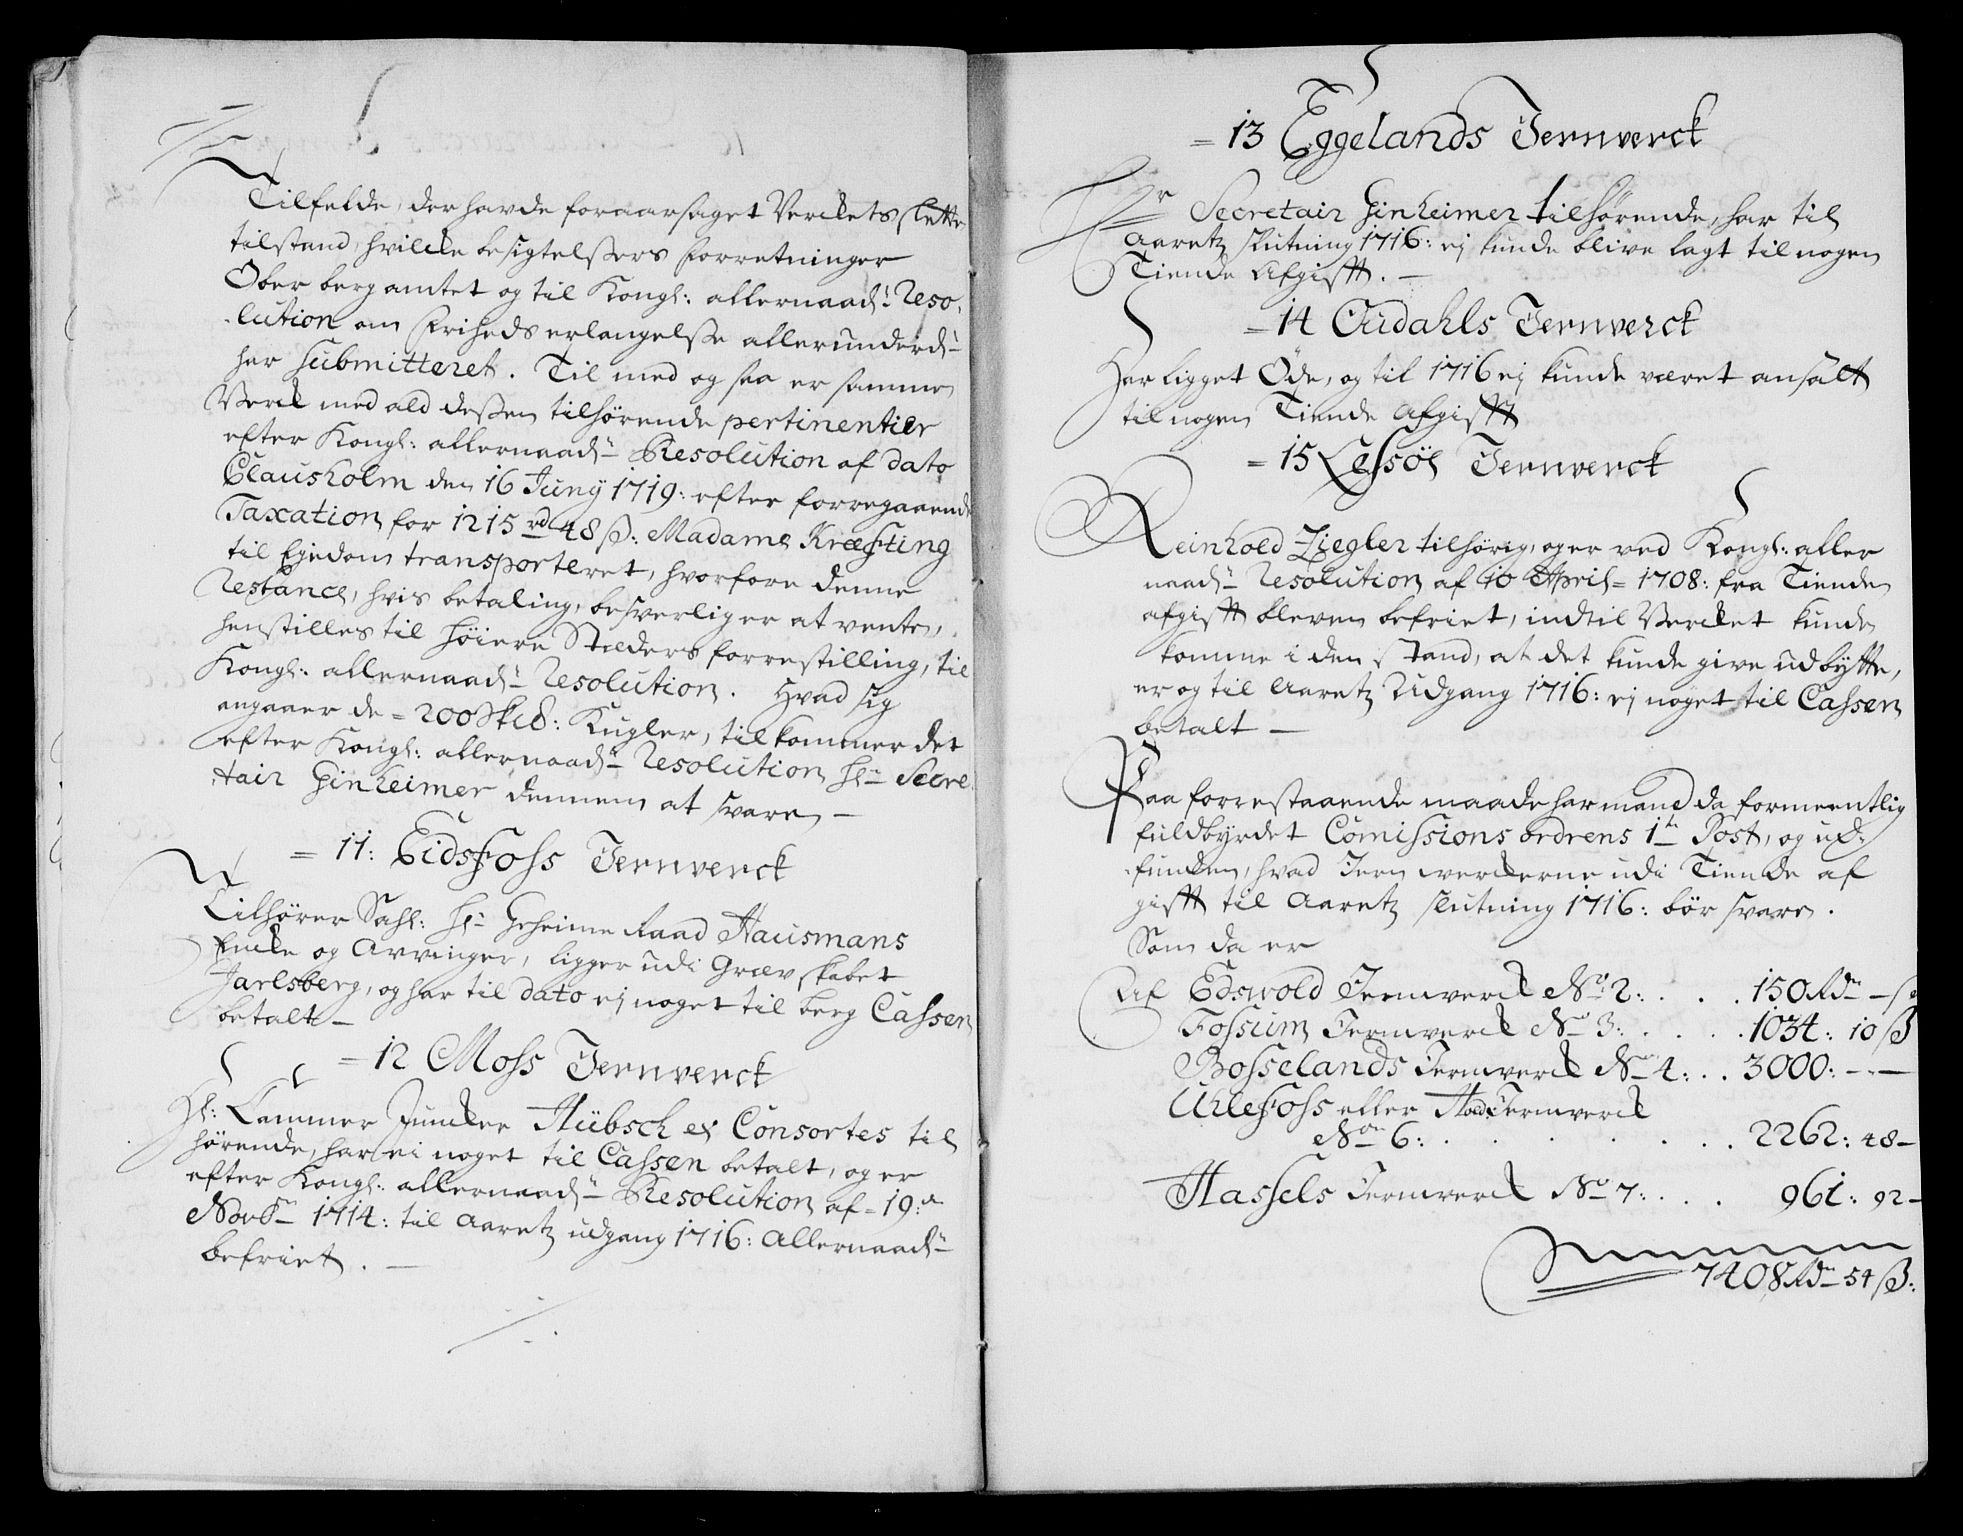 Tilfelde, der havde foraarsaget Verckets slette
tilstand, hvilcke besigtelssers forretninger
Ober bergamtet og til Kongl: allernaad: Reso-
lution om Friheds erlangelsse allerunderd:
har submitteret. Til med og saa er samme
Verck med ald dessen tilhørende pertinentier
efter Kongl: allernaad: Resolution af dato
Clausholm den 16 Juny 1719: efter forregaaende
Taxation for 1215 rd 48 ß: Madame Kræfting
til Ejedom transporteret, hvorfore denne
Restance, hvis betaling, besverlig er at vente,
henstilles til höiere Stæders forrestilling, til
Kongl: allernaad: Resolution. Hvad sig
angaaer de = 200 Skd: Kugler, tilkommer det
efter Kongl: allernaad: Resolution Hr Secre
tair Ginheimer dennem at svare —
= 11: Eidsfoss Jernverck
Tilhører Sahl: Hr Geheime Raad Hausmans
Encke og Arvinger, ligger udi Grævskabet
Jarlsberg, og har til dato ej noget til berg Cassen
betalt —
= 12 Moss Jernverck
Hr: Cammer Juncker Hübsch et Consortes til
hørende, har ei noget til Cassen betalt, og er
efter Kongl: allernaad: Resolution af = 19:
Novbr 1714: til Aaretz udgang 1716: Allernaad:
befriet. —
= 13 Eggelands Jernverck
Hr Secretair Ginheimer tilhørende, har til
Aaretz Slutning 1716: ej kunde blive lagt til nogen
Tiende Afgifft. —
= 14 Oudahls Jernverck
Har ligget Øde, og til 1716 ej kunde været ansatt
til nogen Tiende Afgifft
= 15 Lessøe Jernverck
Reinhold Ziegler tilhørig, og er ved Kongl: aller
naad: Resolution af 10 April = 1708: fra Tiende
afgifft bleven befriet, indtil Vercket kunde
komme i den stand, at det kunde give udbytte,
er og til Aaretz Udgang 1716: ej noget til Cassen
betalt —
Paa forrestaaende maade har mand da formeentlig
fuldbyrdet Comissions ordrens 1te Post, og ud-
funden, hvad Jern werckerne udi Tiende af
gifft til Aaretz slutning 1716: bör svare.
Som da er
Af Edswold Jernverck No 2: . . . 150 Rdr — ß
Fossum Jernverck No 3: . . . . 1034: 10 ß
Bosselands Jernverck No 4: . . 3000: - - —
Uhlefoss eller Holds Jernverck
No 6: . . . . . . . 2262: 48 —
Hassels Jernverck No 7: . . . 961: 92 —
7408 Rdr 54 ß: